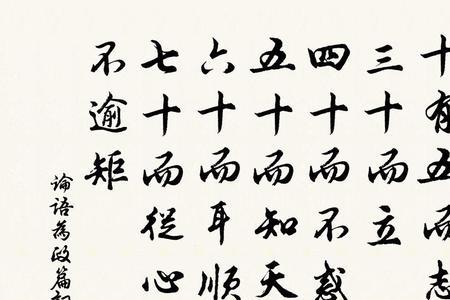 十有五而志
三十而立
四十而不惑
五十而知天
六十而耳順
七十而從心
不逾矩
論語為政篇